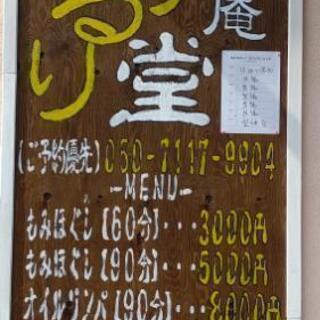 庵
堂
(ご予約優先)050-7117-9904
-MENU-
もみほぐし【60分】･･･3000円
もみほぐし【90分】･･･5000円
オイルリンパ【90分】･･･8000円